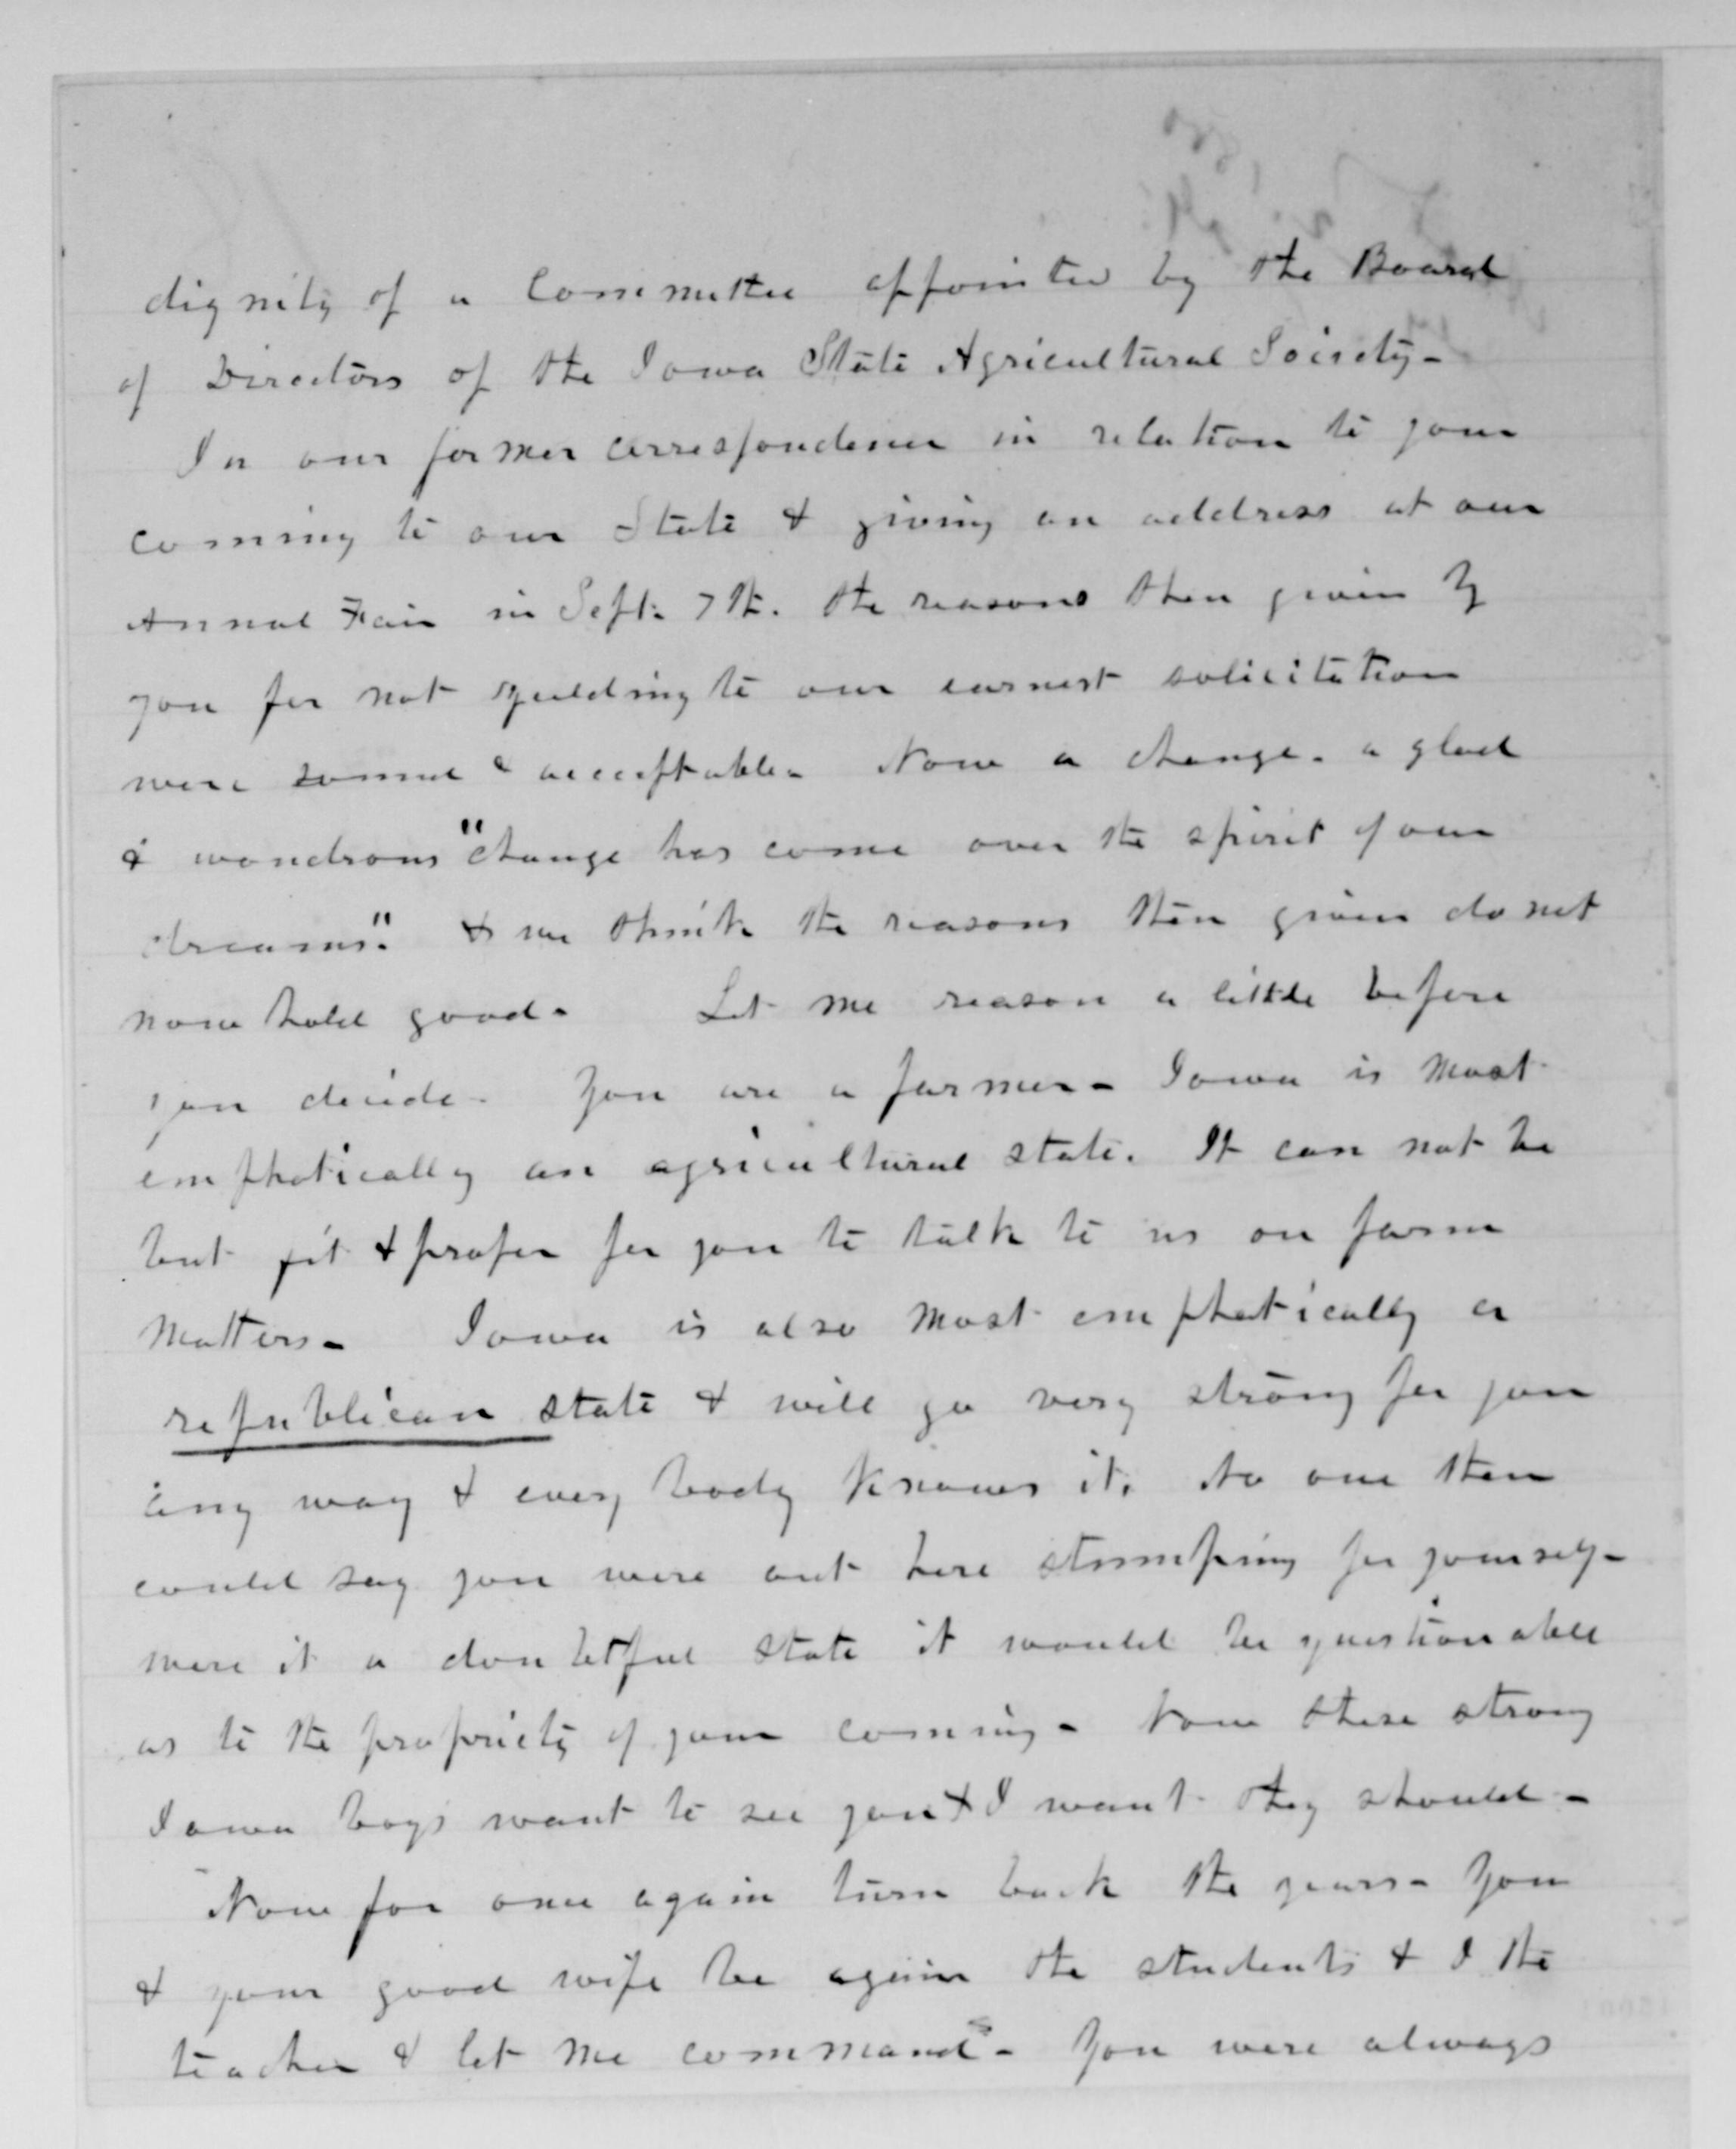 dignity of a Committee appointed by the Board
of Directors of the Iowa State Agricultural Society-
In our former correspondence in relation to your
coming to our State & giving an address at our
Annual Fair in Sept. 7th. the reasons then given by
you for not yielding to our earnest solicitation
were sound & acceptable- Now a change- a glad
& wondrous "change has come over the spirit of our
dreams". & we think the reasons then given do not
now hold good- Let me reason a little before
you decide- You are a farmer- Iowa is most
emphatically an agricultural state. It can not be
but fit & proper for you to talk to us on farm
matters- Iowa is also most emphatically a
republican state & will go very strong for you
any way & every body knows it. No one then
could say you were out here stumping for yourself-
were it a doubtful state it would be questionable
as to the propriety of your coming- Now these strong
Iowa boys want to see you & I want they should-
Now for once again turn back the years- You
& your good wife be again the students & I the
teacher & let me command- You were always